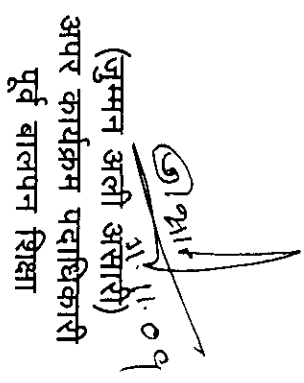 (जुमान अली असारी)
अपर कार्यक्रम पदाधिकारी
पूर्व बालपन शिक्षा